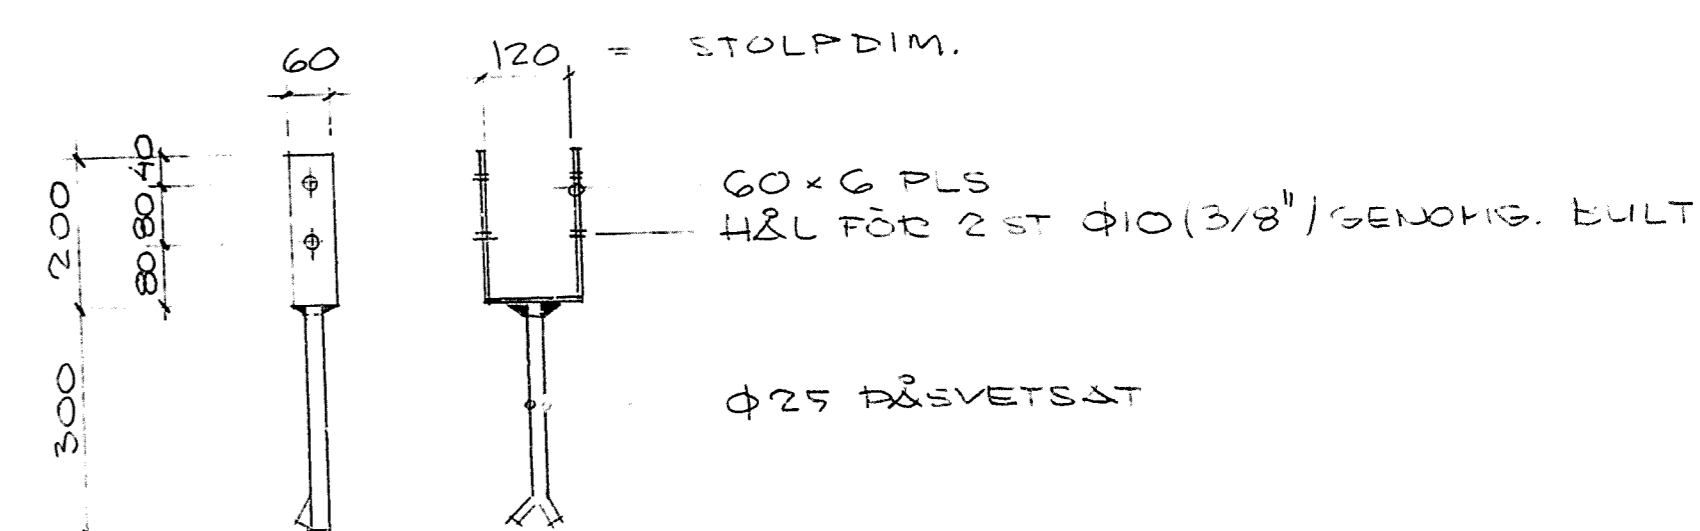 60
120 = STOLPDIM.
40
80
80
200
300
60 × 6 PLS
HÅL FÖR 2 ST φ10 (3/8") GENOMG. BULT
φ25 PÅSVETSAT